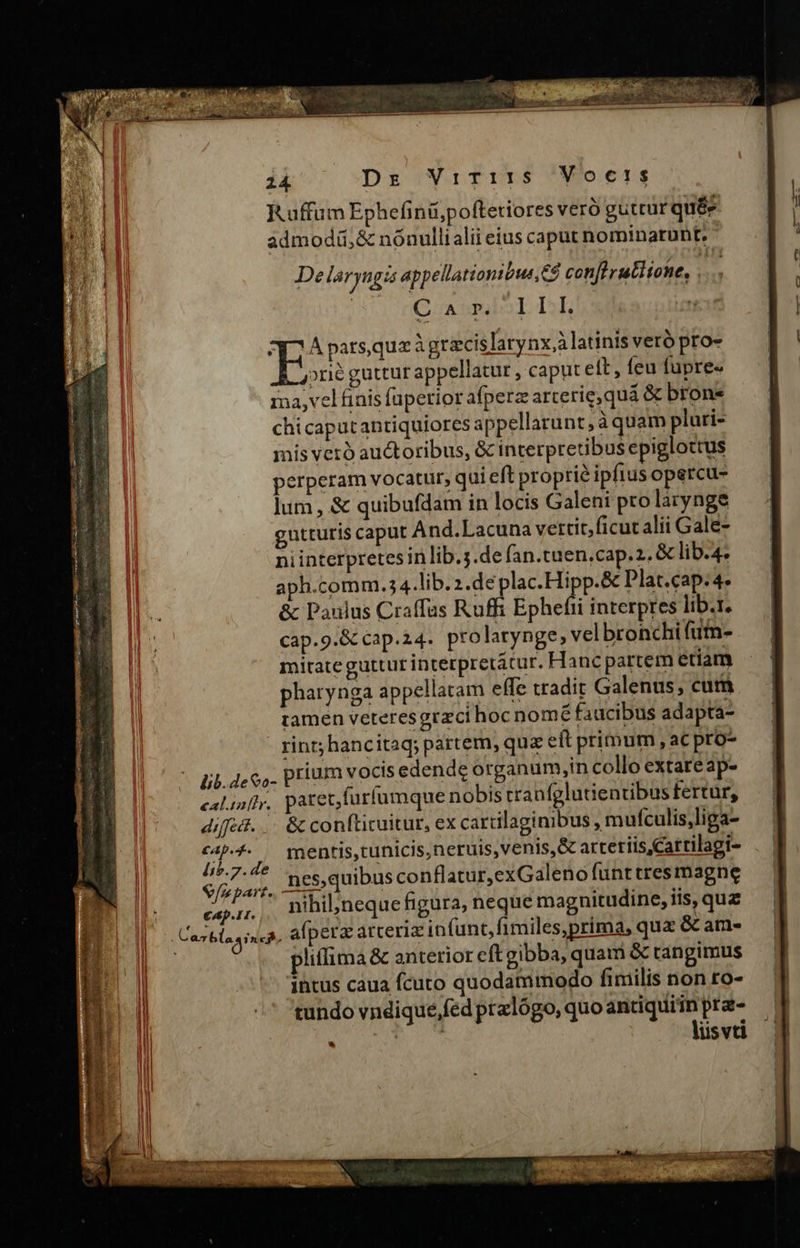 24 De Vitiis Vocis
Ruffum Ephesinũ,posteriores verò guttur quẽ-
admodũ,& nõnulli alii eius caput nominarunt.
De laryngis appellationibus,& constructione,
Cap. III.
EA pars,quæ à græcis larynx,à latinis verò pro-
priè guttur appellatur, caput est, seu supre-
ma,vel finis superior asperæ arterię,quã & bron-
chi caput antiquiores appellarunt, à quam pluri-
mis verò auctoribus, & interpretibus epiglottus
perperam vocatur, qui est propriè ipsius opercu-
lum, & quibusdam in locis Galeni pro larynge
gutturis caput And. Lacuna vertit, sicut alii Gale-
ni interpretes in lib.5.de san.tuen.cap.2. & lib.4.
aph.comm.34.lib.2.de plac.Hipp.& Plat.cap.4.
& Paulus Crassus Ruffi Ephesii interpres lib.1.
cap.9.& cap.24. pro larynge, vel bronchi sum-
mitate guttur interpretãtur. Hanc partem etiam
pharynga appellatam esse tradit Galenus, cum
tamen veteres græci hoc nomẽ faucibus adapta-
rint; hanc itaq; partem, quæ est primum, ac pro-
prium vocis edendę organum,in collo extare ap-
paret,sursumque nobis transglutientibus fertur,
& constituitur, ex cartilaginibus, musculis,liga-
mentis,tunicis,neruis,venis,& arteriis,Cartilagi-
nes,quibus conflatur,ex Galeno sunt tres magnę
nihil,neque figura, neque magnitudine, iis, quæ
asperæ arteriæ insunt,similes,prima, quæ & am-
plissima & anterior est gibba, quam & tangimus
intus caua scuto quodammodo similis non ro-
tundo vndique,sed prælõgo, quo antiqui in præ-
liis vti
lib.de Vo-
cal.instr.
dissect.
cap.4.
lib.7.de
Vsu part.
cap.11.
Cartilagines.